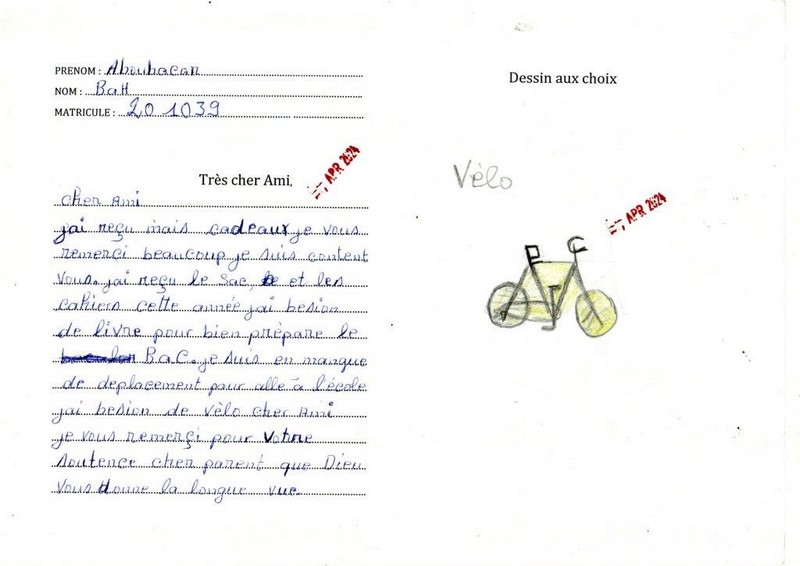 PRENOM : Aboubacar
NOM : BaH
MATRICULE : 20 1039
Très cher Ami,
APR 2024
cher Ami
jai reçu mais cadeaux je vous
remerci beaucoup je suis content
Vous. jai reçu le Sac, et les
cahiers cette année jai besion
de livre pour bien prépare le
BaC. je suis en manque
de deplacement pour alle à l'école
jai besion de vélo cher Ami
je vous remerçi pour Votre
soutence cher parent que Dieu
Vous donne la longue vue.
Dessin aux choix
Vélo
APR 2024